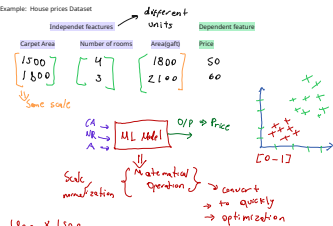 Example: House prices Dataset
different
units
Independet feactures
Dependent feature
Carpet Area
Number of rooms
Area(gaft)
Price
1500 4 1800 50
1800 3 2100 60
Same scale
CA
NR
A
ML Model
O/P → Price
[0-1]
Scale
normalization
Matematical
operation
convert
→ to quickly
→ optimization